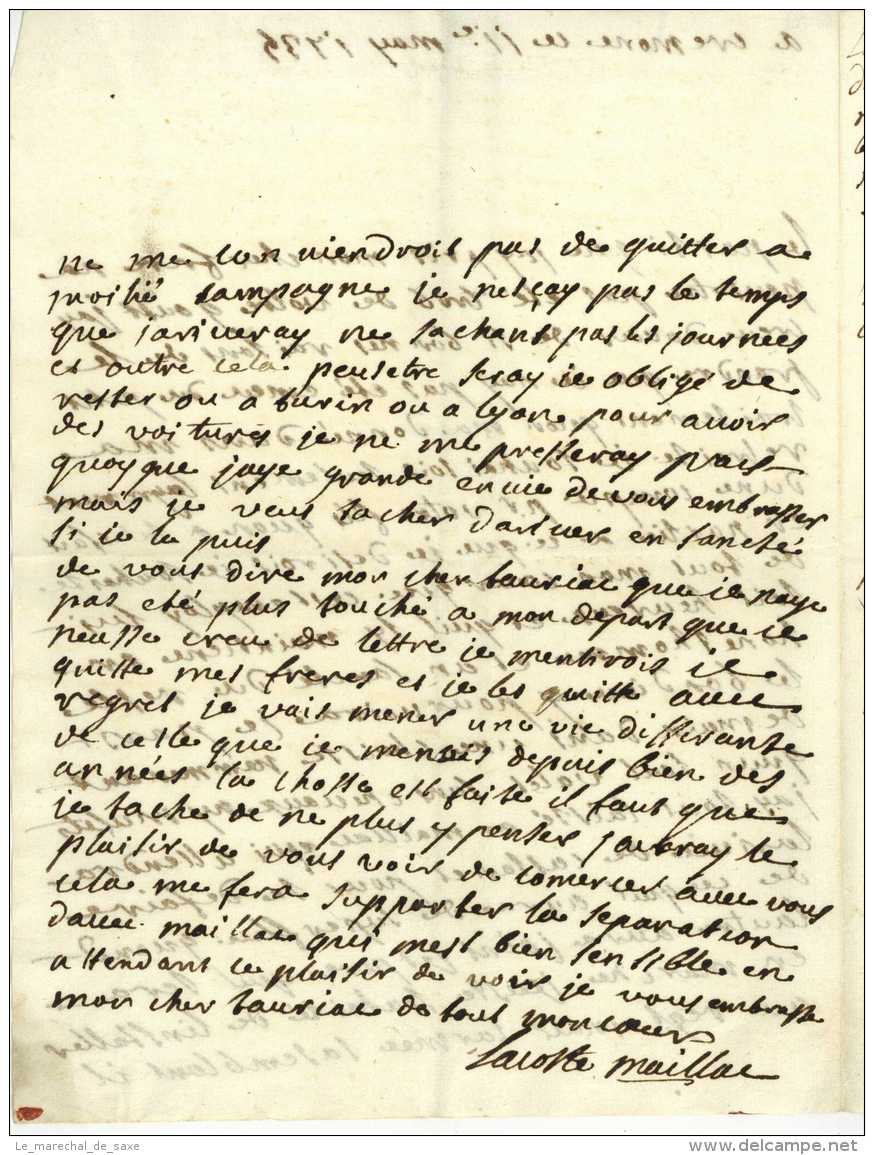 ne me conviendroit pas de quitter a
moitié campagne je nesçay pas le temps
que jariueray ne sachant pas les journées
et outre cela peutetre seray je obligé de
rester ou a turin ou a lyon pour auoir
des voitures je ne me presseray pas
quoyque jaye grande enuie de vous embrasser
mais je veus tacher dariuer en santé
si je le puis
de vous dire mon cher tauriac que je naye
pas eté plus touché a mon depart que je
neusse creu de lettre je mentirois je
quitte mes freres et je les quitte auec
regret je vais mener une vie differante
de celle que je menois depuis bien des
années la chosse est faite il faut que
je tache de ne plus y penser jauray le
plaisir de vous voir de comercer auec vous
cela me fera supporter la separation
dauec maillac qui mest bien sensible en
attendant le plaisir de voir je vous embrasse
mon cher tauriac de tout mon coeur
Lacoste maillac
Le_marechal_de_saxe
delcampe.net